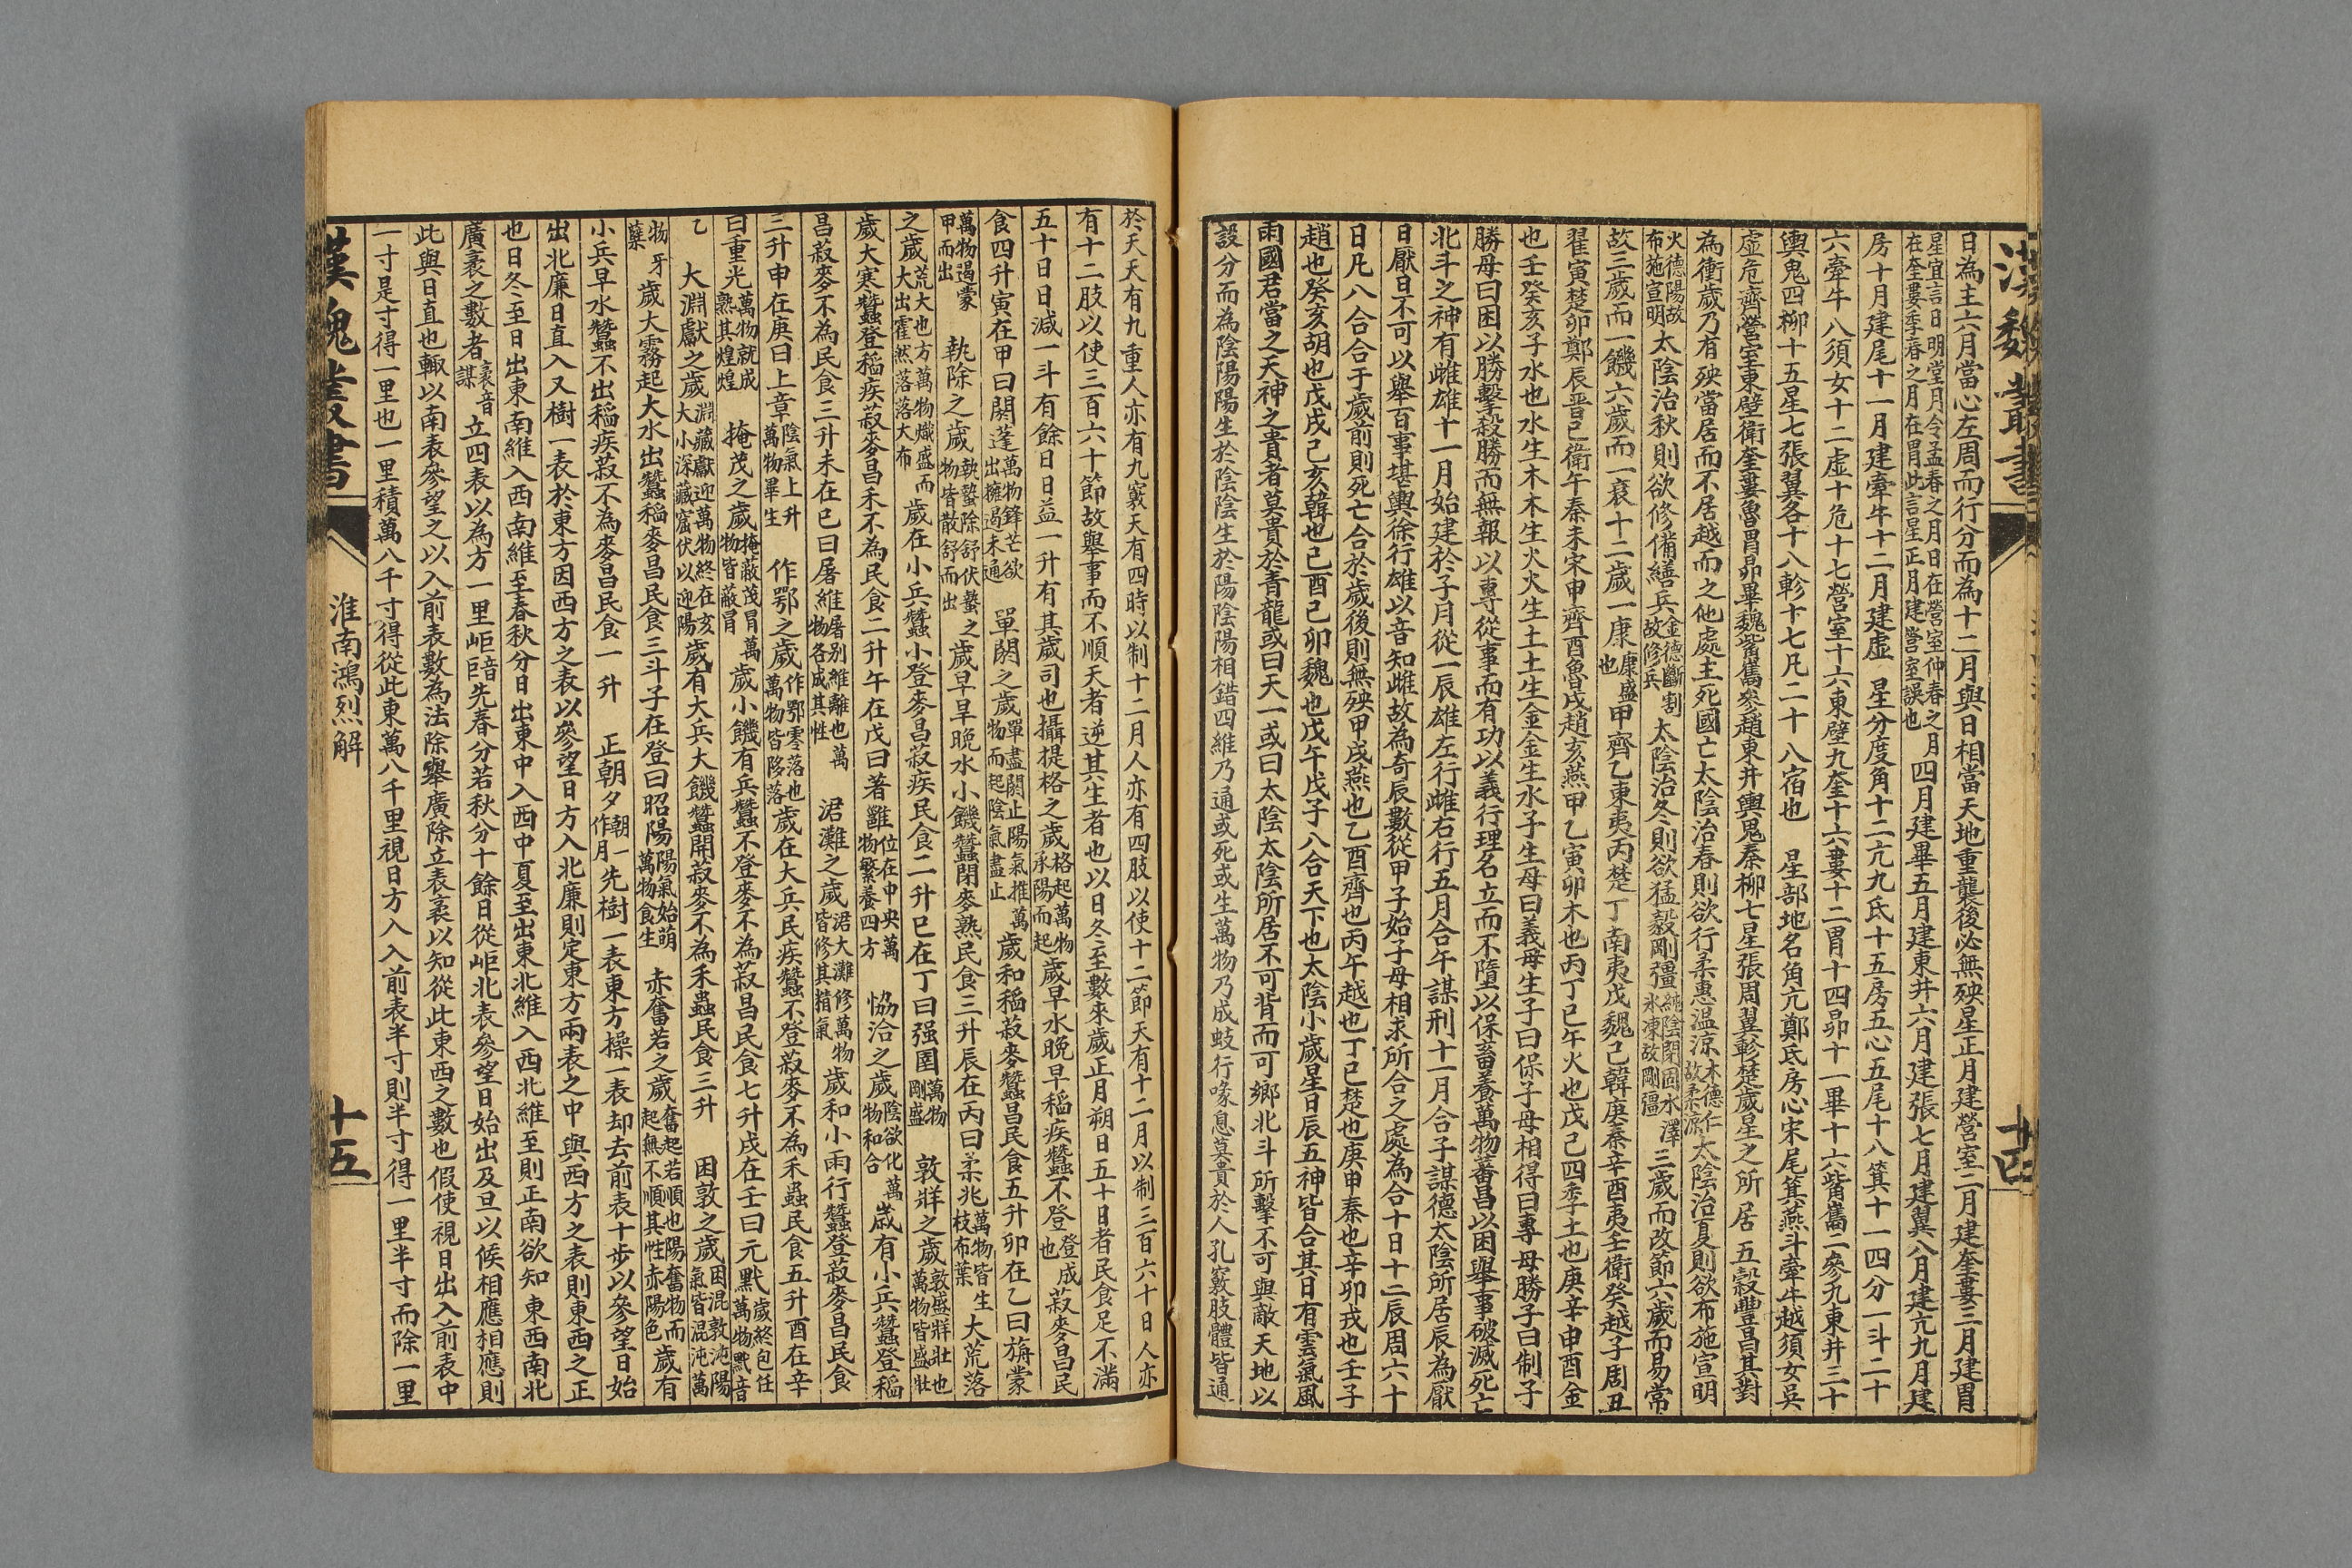 漢魏叢書
十四
日為主六月當心左周而行分而為十二月與日相當天地重襲後必無殃星正月建營室二月建奎婁三月建胃
星宜言日明堂月令孟春之月日在營室仲春之月在奎婁季春之月在胃此言星正月建營室誤也四月建畢五月建東井六月建張七月建翼八月建亢九月建
房十月建尾十一月建牽牛十二月建虛 星分度角十二亢九氐十五房五心五尾十八箕十一四分一斗二十
六牽牛八須女十二虛十危十七營室十六東壁九奎十六婁十二胃十四昴十一畢十六觜觿二參九東井三十
輿鬼四柳十五星七張翼各十八軫十七凡二十八宿也 星部地名角亢鄭氐房心宋尾箕燕斗牽牛越須女吳
虛危齊營室東壁衛奎婁魯胃昴畢魏觜觿參趙東井輿鬼秦柳七星張周翼軫楚歲星之所居五穀豐昌其對
為衝歲乃有殃當居而不居越而之他處主死國亡太陰治春則欲行柔惠温涼木德仁故柔涼太陰治夏則欲布施宣明
火德陽故布施宣明太陰治秋則欲修備繕兵金德斷割故修兵太陰治冬則欲猛毅剛彊純陰閉固水澤冰凍故剛彊三歲而改節六歲而易常
故三歲而一饑六歲而一衰十二歲一康康盛也甲齊乙東夷丙楚丁南夷戊魏己韓庚秦辛酉夷壬衛癸越子周丑
翟寅楚卯鄭辰晉巳衛午秦未宋申齊酉魯戌趙亥燕甲乙寅卯木也丙丁巳午火也戊己四季土也庚辛申酉金
也壬癸亥子水也水生木木生火火生土土生金金生水子生母曰義母生子曰保子母相得曰專母勝子曰制子
勝母曰困以勝擊殺勝而無報以專從事而有功以義行理名立而不墮以保畜養萬物蕃昌以困舉事破滅死亡
北斗之神有雌雄十一月始建於子月從一辰雄左行雌右行五月合午謀刑十一月合子謀德太陰所居辰為厭
日厭日不可以舉百事堪輿徐行雄以音知雌故為奇辰數從甲子始子母相求所合之處為合十日十二辰周六十
日凡八合合于歲前則死亡合於歲後則無殃甲戌燕也乙酉齊也丙午越也丁巳楚也庚申秦也辛卯戎也壬子
趙也癸亥胡也戊戌己亥韓也己酉己卯魏也戊午戊子八合天下也太陰小歲星日辰五神皆合其日有雲氣風
雨國君當之天神之貴者莫貴於青龍或曰天一或曰太陰太陰所居不可背而可鄉北斗所擊不可與敵天地以
設分而為陰陽陽生於陰陰生於陽陰陽相錯四維乃通或死或生萬物乃成蚑行喙息莫貴於人孔竅肢體皆通
於天天有九重人亦有九竅天有四時以制十二月人亦有四肢以使十二節天有十二月以制三百六十日人亦
有十二肢以使三百六十節故舉事而不順天者逆其生者也以日冬至數來歲正月朔日五十日者民食足不滿
五十日日減一斗有餘日日益一升有其歲司也攝提格之歲格起萬物承陽而起歲早水晚旱稻疾蠶不登登成也菽麥昌民
食四升寅在甲曰閼蓬萬物鋒芒欲出擁遏未通 單閼之歲單盡閼止陽氣推萬物而起陰氣盡止歲和稻菽麥蠶昌民食五升卯在乙曰旃蒙
萬物遏蒙甲而出 執除之歲執蟄除舒伏蟄之物皆散舒而出歲早旱晚水小饑蠶閉麥熟民食三升辰在丙曰柔兆萬物皆生枝布葉大荒落
之歲荒大也方萬物熾盛而大出霍然落落大布歲在小兵蠶小登麥昌菽疾民食二升巳在丁曰强圉萬物剛盛 敦牂之歲敦盛牂壯也萬物皆盛壯
歲大寒蠶登稻疾菽麥昌禾不為民食二升午在戊曰著雝位在中央萬物繁養四方 恊洽之歲陰欲化萬物和合歲有小兵蠶登稻
昌菽麥不為民食三升未在己曰屠維屠别維離也萬物各成其性 涒灘之歲涒大灘修萬物皆修其精氣歲和小雨行蠶登菽麥昌民食
三升申在庚曰上章陰氣上升萬物畢生 作鄂之歲作鄂零落也萬物皆陊落歲在大兵民疾蠶不登菽麥不為禾蟲民食五升酉在辛
曰重光萬物就成熟其煌煌 掩茂之歲掩蔽茂冒萬物皆蔽冒歲小饑有兵蠶不登麥不為菽昌民食七升戌在壬曰元黓歲終包任萬物黓音
乙 大淵獻之歲淵藏獻迎萬物終在亥大小深藏窟伏以迎陽歲有大兵大饑蠶開菽麥不為禾蟲民食三升 困敦之歲困混敦沌陽氣皆混沌萬
物牙蘖歲大霧起大水出蠶稻麥昌民食三斗子在登曰昭陽陽氣始萌萬物食生 赤奮若之歲奮起若順也陽奮物而起無不順其性赤陽色歲有
小兵早水蠶不出稻疾菽不為麥昌民食一升 正朝夕朝一作月先樹一表東方操一表却去前表十步以參望日始
出北廉日直入又樹一表於東方因西方之表以參望日方入北廉則定東方兩表之中與西方之表則東西之正
也日冬至日出東南維入西南維至春秋分日出東中入西中夏至出東北維入西北維至則正南欲知東西南北
廣袤之數者袤音謀立四表以為方一里岠岠音先春分若秋分十餘日從岠北表參望日始出及旦以候相應相應則
此與日直也輒以南表參望之以入前表數為法除舉廣除立表袤以知從此東西之數也假使視日出入前表中
一寸是寸得一里也一里積萬八千寸得從此東萬八千里視日方入入前表半寸則半寸得一里半寸而除一里
漢魏叢書
淮南鴻烈解
十五